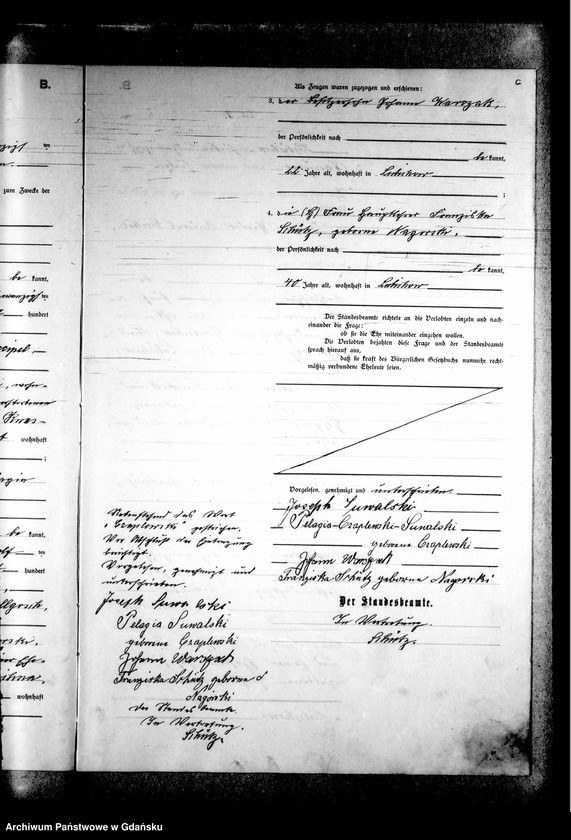 B.
C
Als Zeugen waren zugezogen und erschienen:
3. der Besitzersohn Johann Warczak,
der Persönlichkeit nach
be kannt,
22 Jahre alt, wohnhaft in
;
4. die Frau Hauptlehrer Franziska
Schütz, geborene Nagorski,
der Persönlichkeit nach
be kannt,
40 Jahre alt, wohnhaft in
Der Standesbeamte richtete an die Verlobten einzeln und nach-
einander die Frage:
ob sie die Ehe miteinander eingehen wollen.
Die Verlobten bejahten diese Frage und der Standesbeamte
sprach hierauf aus,
daß sie kraft des Bürgerlichen Gesetzbuchs nunmehr recht-
mäßig verbundene Eheleute seien.
Vorgelesen, genehmigt und unterschrieben
Joseph Suwalski
Pelagia Czaplewski-Suwalski
geborene Czaplewski
Johann Warczak
Franziska Schütz geborene Nagorski
Der Standesbeamte.
In Vertretung.
Schütz.
Nebenstehend das Wort
"Czaplewski" gestrichen.
Vor Abschluß der Eintragung
berichtigt.
Vorgelesen, genehmigt und
unterschrieben.
Joseph Suwalski
Pelagia Suwalski
geborene Czaplewski
Johann Warczak
Franziska Schütz geborene
Nagórski
Der Standesbeamte.
In Vertretung.
Schütz.
zum Zwecke der
be kannt,
ten
hundert
wohnhaft
;
be kannt,
ten
hundert
wohnhaft
Archiwum Państwowe w Gdańsku